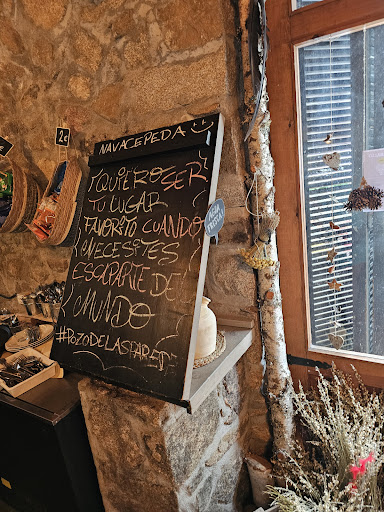 2€
NAVACEPEDA
¡QUIERO SER
TU LUGAR
FAVORITO CUANDO
NECESITES
ESCAPARTE DEL
MUNDO
#POZODELASPAREDES